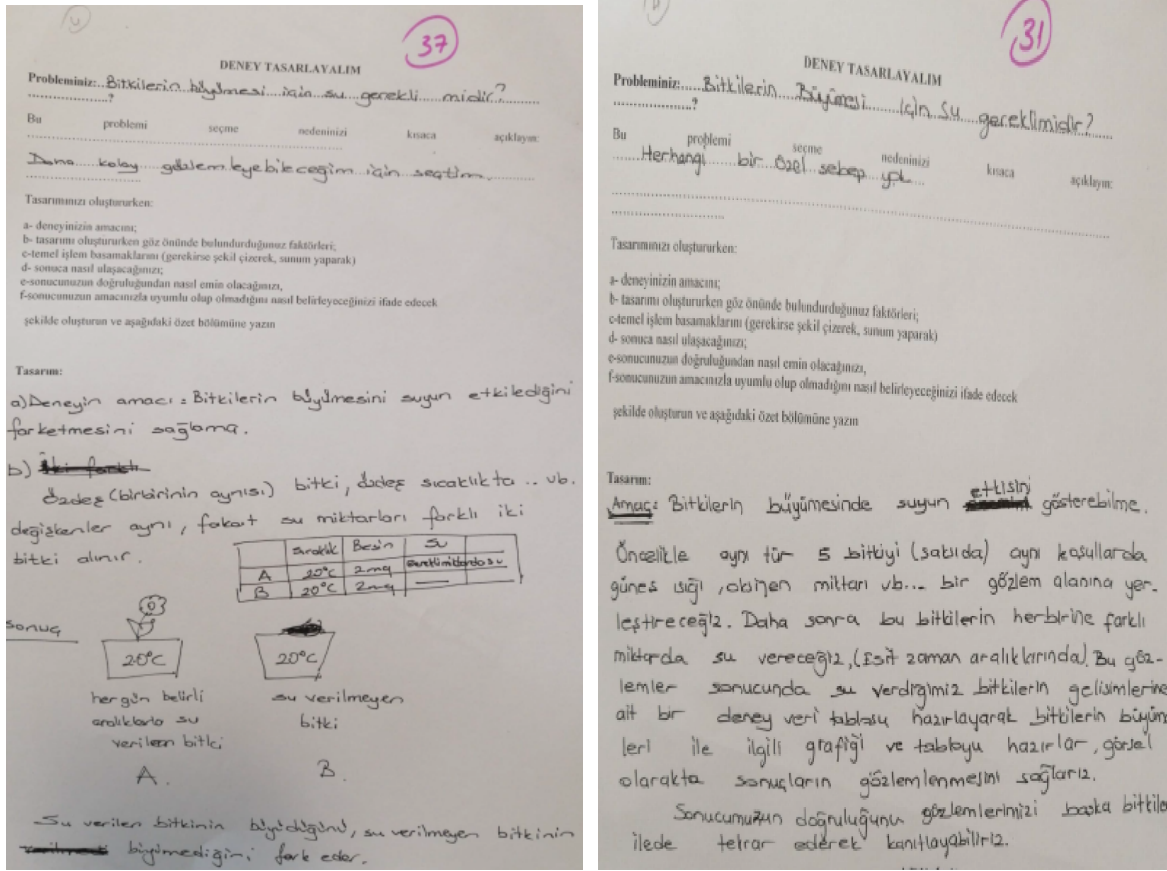 37
DENEY TASARLAYALIM
Probleminiz:..Bitkilerin büyümesi için su gerekli midir?
?
Bu problemi seçme nedeninizi kısaca açıklayın:
Daha kolay gözlemleyebileceğim için seçtim.
Tasarımınızı oluştururken:
a- deneyinizin amacını;
b- tasarımı oluştururken göz önünde bulundurduğunuz faktörleri;
c-temel işlem basamaklarını (gerekirse şekil çizerek, sunum yaparak)
d- sonuca nasıl ulaşacağınızı;
e-sonucunuzun doğruluğundan nasıl emin olacağınızı,
f-sonucunuzun amacınızla uyumlu olup olmadığını nasıl belirleyeceğinizi ifade edecek
şekilde oluşturun ve aşağıdaki özet bölümüne yazın
Tasarım:
a)Deneyin amacı: Bitkilerin büyümesini suyun etkilediğini
farketmesini sağlama.
b)
Özdeş (birbirinin aynısı) bitki, özdeş sıcaklıkta .. vb.
değişkenler aynı, fakat su miktarları farklı iki
bitki alınır.
Sıcaklık Besin Su
A 20°C 2mg
B 20°C 2mg —
Sonuç
20°C 20°C
hergün belirli su verilmeyen
aralıklarla su bitki
verilen bitki
A. B.
Su verilen bitkinin büyüdüğünü, su verilmeyen bitkinin
büyümediğini fark eder.
31
DENEY TASARLAYALIM
Probleminiz:....Bitkilerin Büyümesi için su gereklimidir?
?
Bu problemi seçme nedeninizi kısaca açıklayın:
Herhangi bir özel sebep yok
Tasarımınızı oluştururken:
a- deneyinizin amacını;
b- tasarımı oluştururken göz önünde bulundurduğunuz faktörleri;
c-temel işlem basamaklarını (gerekirse şekil çizerek, sunum yaparak)
d- sonuca nasıl ulaşacağınızı;
e-sonucunuzun doğruluğundan nasıl emin olacağınızı,
f-sonucunuzun amacınızla uyumlu olup olmadığını nasıl belirleyeceğinizi ifade edecek
şekilde oluşturun ve aşağıdaki özet bölümüne yazın
Tasarım:
Amaç: Bitkilerin büyümesinde suyun etkisini gösterebilme.
Öncelikle aynı tür 5 bitkiyi (saksıda) aynı koşullarda
güneş ışığı, oksijen miktarı vb... bir gözlem alanına yer-
leştireceğiz. Daha sonra bu bitkilerin herbirine farklı
miktarda su vereceğiz, (Eşit zaman aralıklarında). Bu göz-
lemler sonucunda su verdiğimiz bitkilerin gelişimlerine
ait bir deney veri tablosu hazırlayarak bitkilerin büyüm
leri ile ilgili grafiği ve tabloyu hazırlar, görsel
olarakta sonuçların gözlemlenmesini sağlarız.
Sonucumuzun doğruluğunu gözlemlerimizi başka bitkile
ilede tekrar ederek kanıtlayabiliriz.